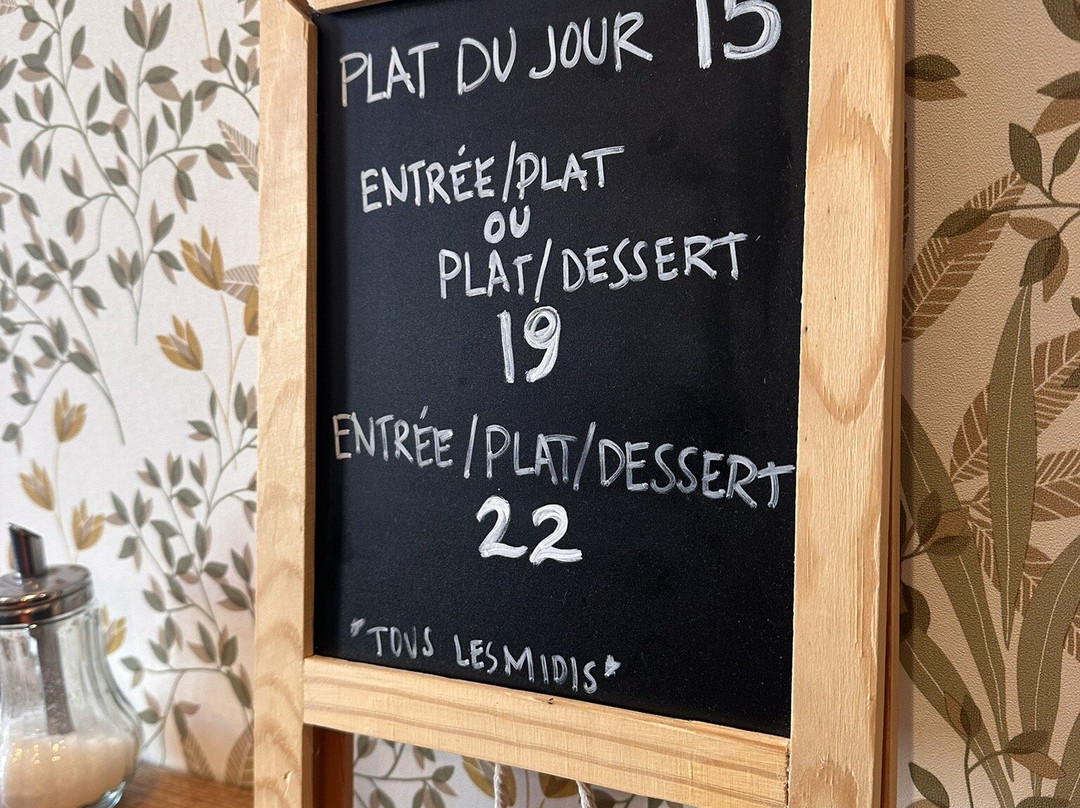 PLAT DU JOUR 15
ENTRÉE/PLAT
OU
PLAT/DESSERT
19
ENTRÉE/PLAT/DESSERT
22
"TOUS LES MIDIS"